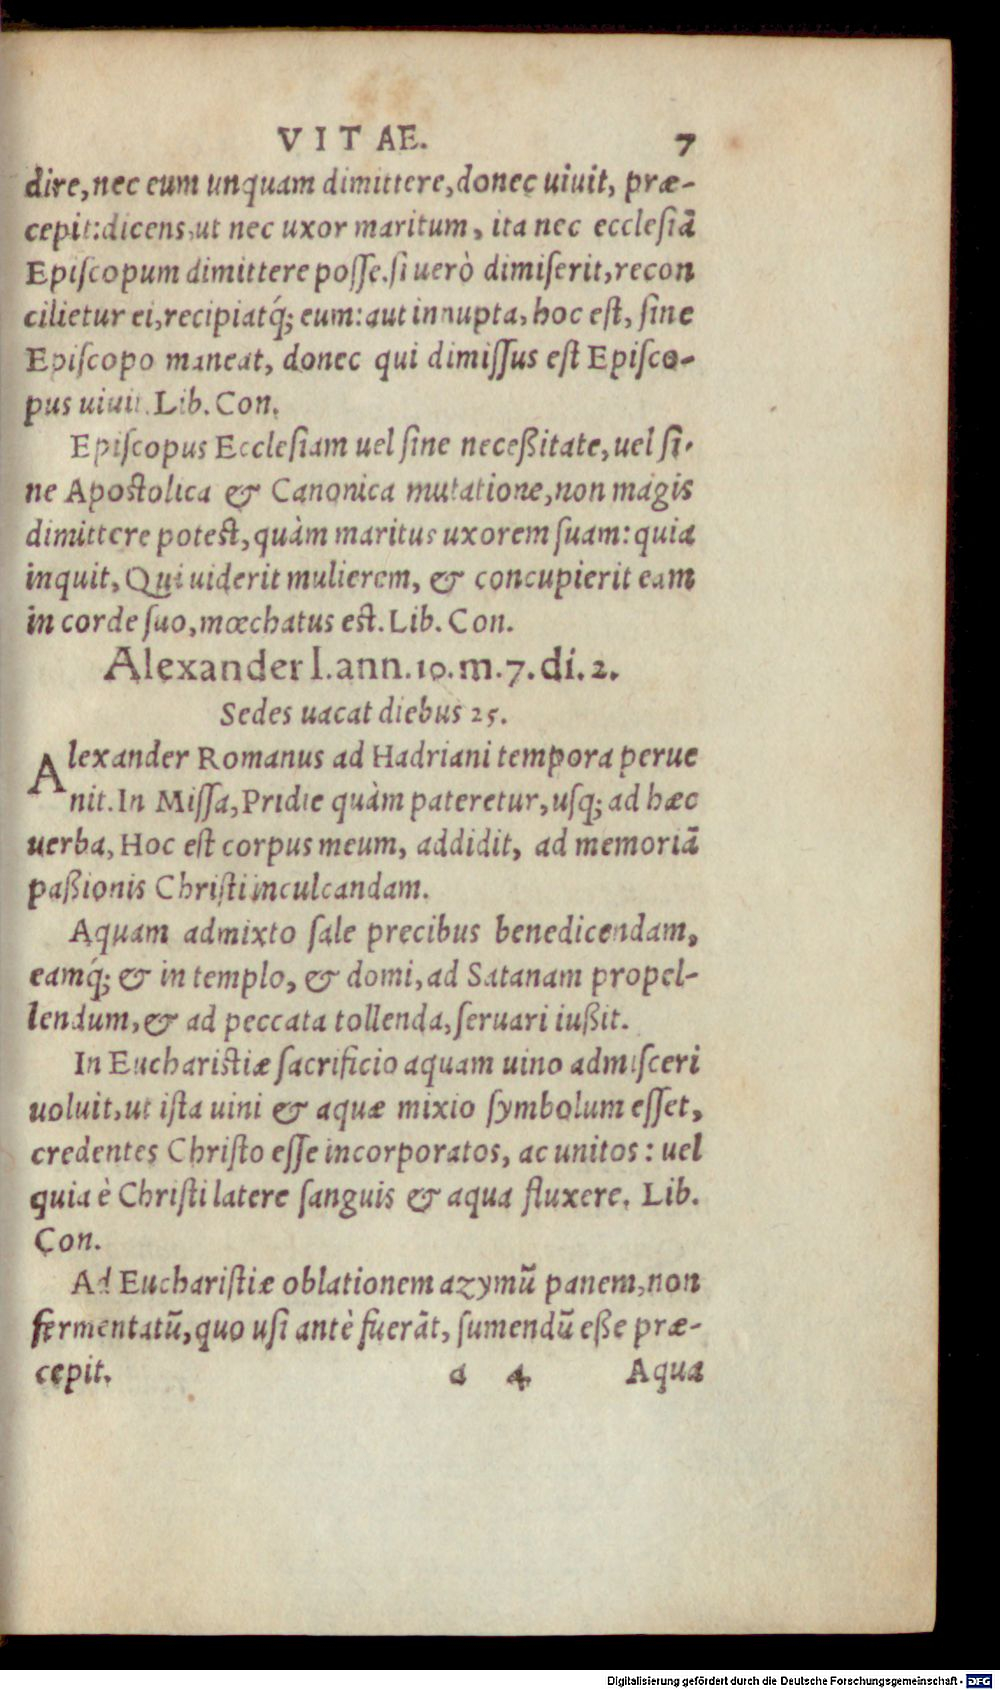 VITAE. 7
dire, nec eum unquam dimittere, donec uiuit, præ-
cepit: dicens, ut nec uxor maritum, ita nec ecclesiā
Episcopum dimittere posse. si uerò dimiserit, recon
cilietur ei, recipiatq́; eum: aut innupta, hoc est, sine
Episcopo maneat, donec qui dimissus est Episco-
pus uiuit. Lib. Con.
Episcopus Ecclesiam uel sine neceßitate, uel si-
ne Apostolica & Canonica mutatione, non magis
dimittere potest, quàm maritus uxorem suam: quia
inquit, Qui uiderit mulierem, & concupierit eam
in corde suo, mœchatus est. Lib. Con.
Alexander I. ann. 10. m. 7. di. 2.
Sedes uacat diebus 25.
Alexander Romanus ad Hadriani tempora perue
nit. In Missa, Pridie quàm pateretur, usq; ad hæc
uerba, Hoc est corpus meum, addidit, ad memoriā
paßionis Christi inculcandam.
Aquam admixto sale precibus benedicendam,
eamq́; & in templo, & domi, ad Satanam propel-
lendum, & ad peccata tollenda, seruari iußit.
In Eucharistiæ sacrificio aquam uino admisceri
uoluit, ut ista uini & aquæ mixio symbolum esset,
credentes Christo esse incorporatos, ac unitos: uel
quia è Christi latere sanguis & aqua fluxere. Lib.
Con.
Ad Eucharistiæ oblationem azymū panem, non
fermentatū, quo usi antè fuerāt, sumendū eße præ-
cepit. a 4 Aqua
Digitalisierung gefördert durch die Deutsche Forschungsgemeinschaft - DFG